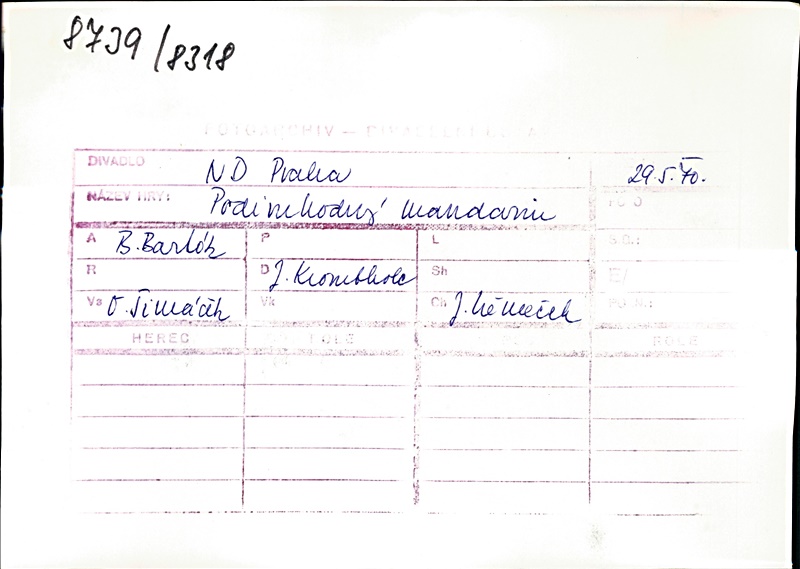 8739/8318
FOTOARCHIV – DIVADELNÍ
DIVADLO ND Praha 29.5.70.
NÁZEV HRY: Podivuhodný mandarin
A B.Bartók P L
R D J.Krombholc Sh
Vs O.Šimáček Vk Ch J.Němeček
HEREC ROLE ROLE